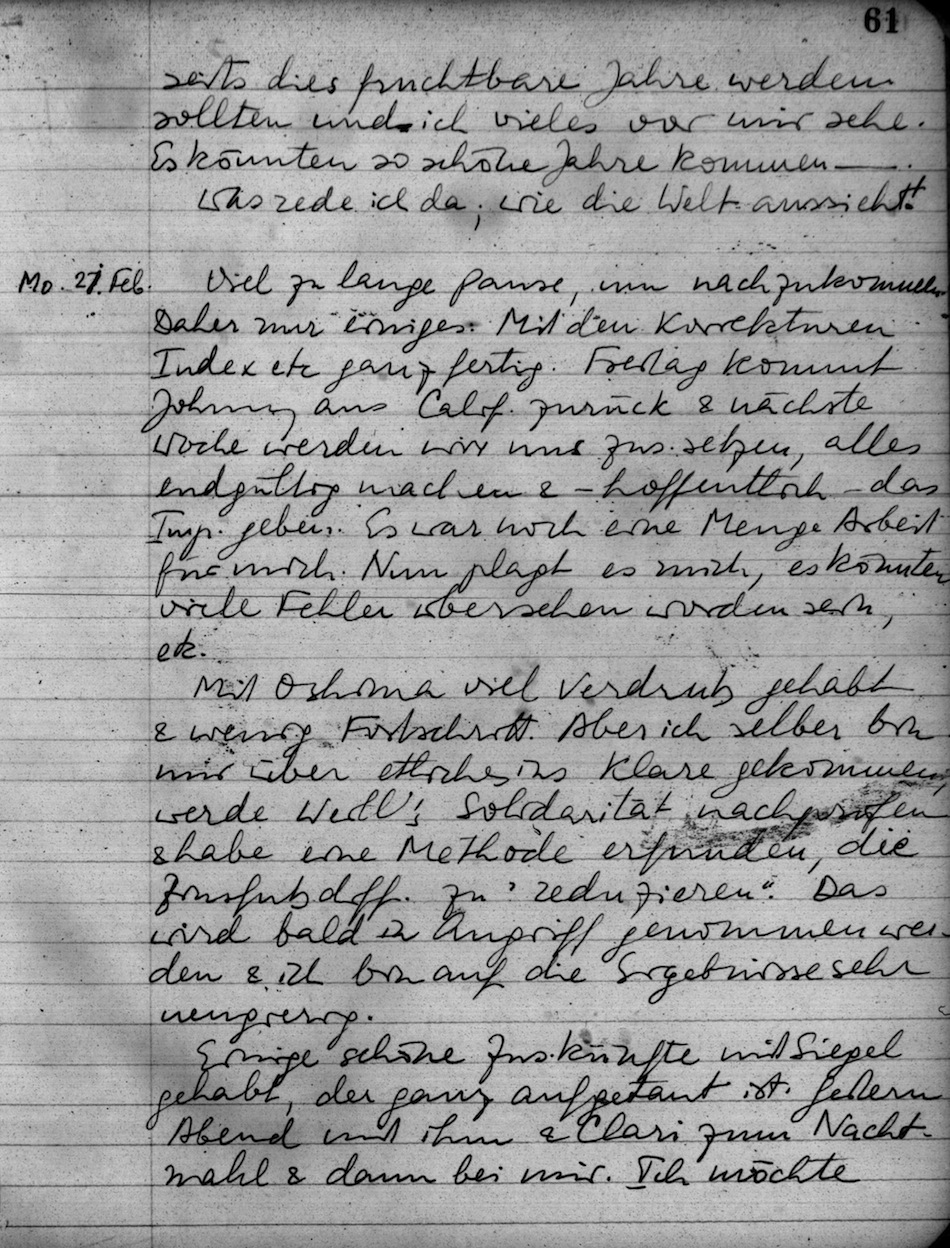 61
seits dies fruchtbare Jahre werden
sollten und ich vieles vor mir sehe.
Es könnten so schöne Jahre kommen —.
Was rede ich da, wie die Welt aussieht!
Mo. 27. Feb. Viel zu lange Pause, um nachzukommen.
Daher nur einiges: Mit den Korrekturen
Index etc ganz fertig. Freitag kommt
Johnny aus Calif. zurück & nächste
Woche werden wir uns zus. setzen, alles
endgültig machen & – hoffentlich – das
Imp. geben. Es war noch eine Menge Arbeit
für mich. Nun plagt es mich, es könnten
viele Fehler übersehen worden sein,
etc.
Mit Oshima viel Verdruß gehabt
& wenig Fortschritt. Aber ich selber bin
mir über etliches ins Klare gekommen,
werde Weyl's Solidarität nachprüfen
& habe eine Methode erfunden, die
Zinsfußdiff. zu "reduzieren". Das
wird bald in Angriff genommen wer-
den & ich bin auf die Ergebnisse sehr
neugierig.
Einige schöne Zus.künfte mit Siegel
gehabt, der ganz aufgetaut ist. Gestern
Abend mit ihm & Clari zum Nacht-
mahl & dann bei mir. Ich möchte